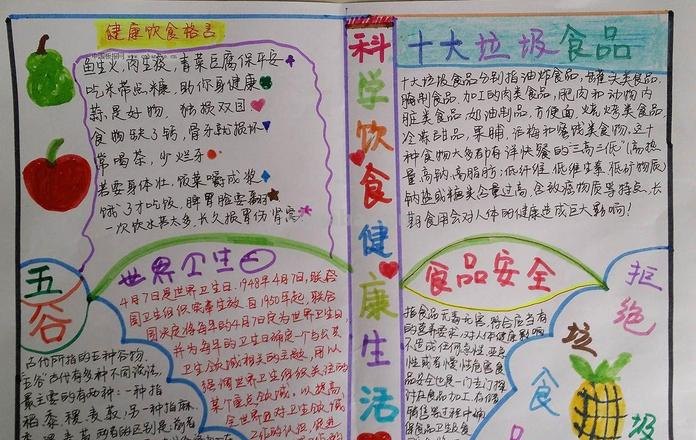 健康饮食格言
鱼生火,肉生痰,青菜豆腐保平安
吃米带点糠,助你身健康
蒜是好物,独损双目
食物缺了钙,骨牙就损坏
常喝茶,少烂牙
若要身体壮,饭菜嚼成浆
饿了才吃饭,脾胃脸要翻
一次饮水莫太多,长久损胃伤肾窝
科学饮食健康生活
十大垃圾食品
十大垃圾食品分别指:油炸食品,罐头类食品,
腌制食品,加工的肉类食品,肥肉和动物内
脏类食品,奶油制品,方便面,烧烤类食品,
冷冻甜品,果脯,话梅和蜜饯类食物,这十
种食物大多都有洋快餐的"三高三低"(高热
量,高钠,高脂肪,低纤维,低维生素,低矿物质)
钠盐或糖类含量过高,含致癌物质等特点,长
期食用会对人体的健康造成巨大影响!
五谷
古代所指的五种谷物。
"五谷"古代有多种不同说法,
最主要的有两种:一种指
稻、黍、稷、麦、菽;另一种指麻、
黍、稷、麦、菽。两者的区别是:前者
世界卫生日
4月7日是世界卫生日。1948年4月7,联合
国卫生组织宪章生效。自1950年起,联合
国决定将每年的4月7日定为世界卫生日
并为每年的卫生日确定一个与公共
卫生领域相关的主题,用以
强调世界卫生组织关注的
某个重点领域。以提高
全世界对卫生领域
工作的认识,促进
食品安全
指食品无毒、无害,符合应当有
的营养要求,对人体健康影响
不造成任何急性、亚急
性或者慢性危害。食
品安全也是一门专门探
讨食品加工、存储
销售等过程中确
保食品卫生及食
拒绝垃圾食品